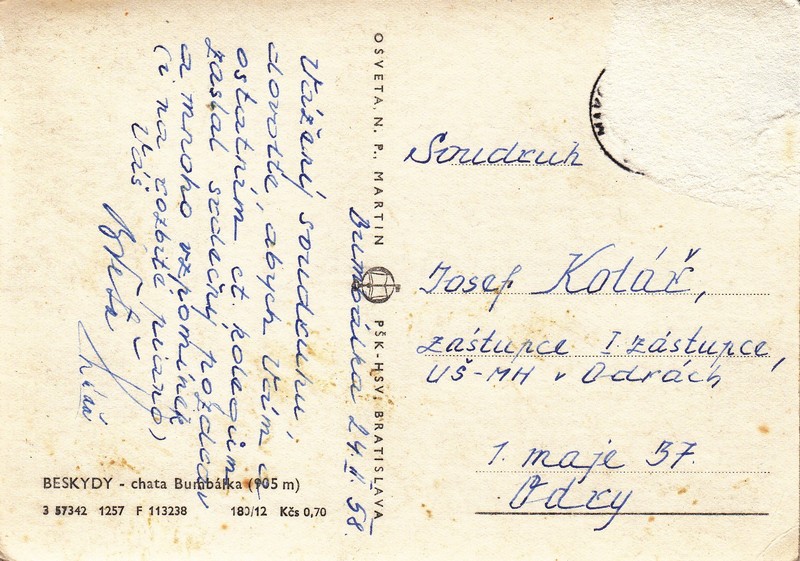 Bumbálka 24. II. 58.
Vážený soudruhu,
dovolte, abych Vám a
ostatním ct. kolegům
zaslal srdečný pozdrav
a mnoho vzpomínek
(i na rozbité piano)
Váš
BESKYDY - chata Bumbálka (905 m)
3 57342 1257 F 113238 180/12 Kčs 0,70
OSVETA, N. P., MARTIN
PŠK-HSV, BRATISLAVA
Soudruh
Josef Kolář,
zástupce I. zástupce,
UŠ-MH v Odrách
1. maje 37.
Odry